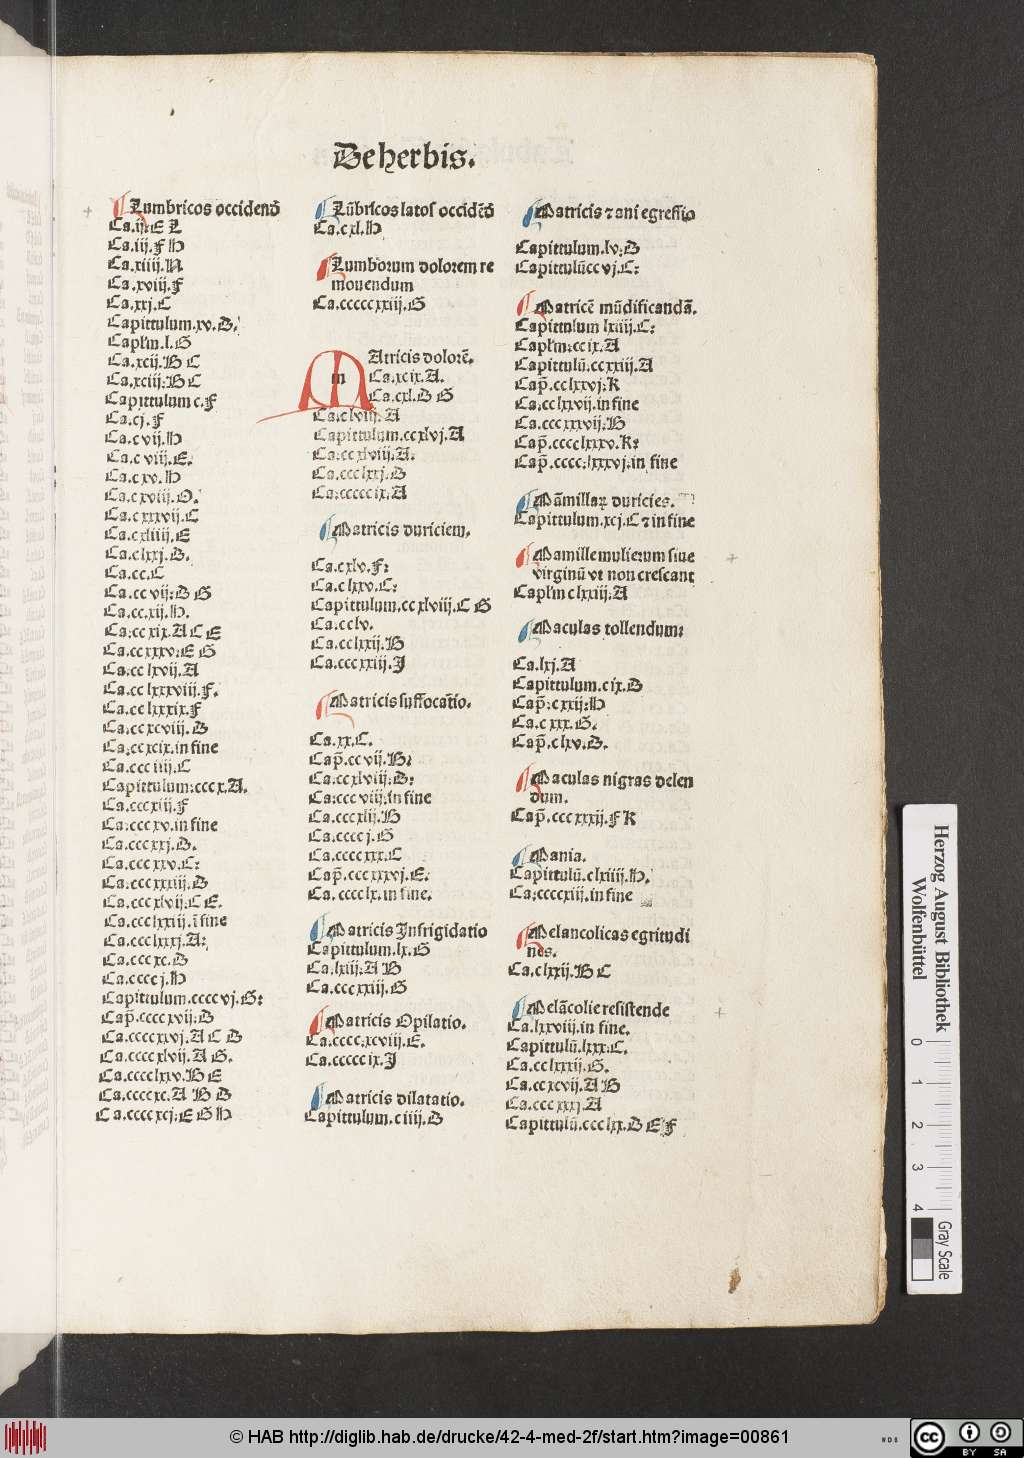 De herbis.
Lumbricos occidenđ
Ca.ij:E L
Ca.iij.F H
Ca.xiiij.N
Ca.xviij.F
Ca.xxj.C
Capittulum.xv.D.
Capl'm.l.G
Ca.xcij.B C
Ca.xciij:B C
Capittulum c.F
Ca.cj.F
Ca.c vij.H
Ca.c viij.E.
Ca.c xv.H
Ca.c xviij.O.
Ca.c xxxvij.C
Ca.c xliiij.E
Ca.c lxxj.D.
Ca.cc.C
Ca.cc vij:D G
Ca.cc.xij.H.
Ca:cc xix.A C E
Ca.cc xxxv:E G
Ca.cc lxvij.A
Ca.cc lxxxviij.F.
Ca.cc lxxxix.F
Ca:cc xcviij.D
Ca:cc xcix.in fine
Ca.ccc iiij.C
Capittulum:ccc x.A.
Ca.ccc xiij.F
Ca:ccc xv.in fine
Ca.ccc xxj.D.
Ca.ccc xxv.C:
Ca:ccc xxxiij.D
Ca.ccc xlvij:C E.
Ca.ccc lxxiij.ī fine
Ca.ccc lxxxj.A:
Ca.ccc xc.D
Ca.cccc j.H
Capittulum.cccc vj.G:
Cap̄.cccc xvij:D
Ca.cccc xxvj.A C D
Ca.cccc xlvij.A G.
Ca.cccc lxxv.B E
Ca.cccc xc.A B D
Ca.cccc xcj:E G H
Lūbricos latos occidēđ
Ca.c xl.H
Lumborum dolorem re
mouendum
Ca.ccccc xxiij.G
m
MAtricis dolorē.
Ca.xcix.A.
Ca.cxl.D G
Ca:c lviij.A
Capittulum.cc xlvj.A
Ca:cc xlviij.A:
Ca.ccc lxxj.D
Ca:ccccc ix:A
Matricis duriciem.
Ca.c xlv.F:
Ca.c lxxv.C:
Capittulum.cc xlviij.C G
Ca:cc lv.
Ca.cc lxxij.B
Ca.ccc xxiij.I
Matricis suffocatio.
Ca.xx.C.
Cap̄.cc vij.B:
Ca:cc xlviij:D:
Ca:ccc viij:in fine
Ca.ccc xlij.B
Ca.cccc j.G
Ca.cccc xxx.C
Cap̄.cccc xxxvj.E.
Ca.cccc lx.in fine.
Matricis Infrigidatio
Capittulum.lx.G
Ca.lxiij:A B
Ca.ccc xxiij.G
Matricis Opilatio.
Ca.cccc.xcviij.E.
Ca.ccccc ix.I
Matricis dilatatio.
Capittulum.c iiij.D
Matricis ⁊ ani egressio
Capittulum.lv:D
Capittulū cc vj.C:
Matricē mūdificandā.
Capittulum lxiiij.C:
Capl'm:cc ix.A
Capittulū.cc xxiij.A
Cap̄.cc lxxvj:K
Ca;cc lxxvij.in fine
Ca.ccc xxxvij:B
Cap̄.cccc lxxxv.K:
Cap̄.cccc:lxxxvj:in fine
Māmillaꝝ duricies.
Capittulum.xcj.C ⁊ in fine
Mamille mulierum siue
virginū vt non crescant
Capl'm c lxxiij:A
Maculas tollendum:
Ca.lxj.A
Capittulum.c ix.D
Cap̄:c xxij:H
Ca.c xxx.G.
Cap̄.c lxv.D.
Maculas nigras delen
dum.
Cap̄.ccc xxxij.F K
Mania.
Capittulū.c lxiiij.H.
Ca;cccc xiij.in fine
Melancolicas egritudi
nes.
Ca.c lxxij.B C
Melācolie resistende
Ca.lxxviij.in fine.
Capittulū.lxxx:C.
Ca.cc lxxxij.G.
Ca.cc xcvij.A B
Ca.ccc xxxj.A
Capittulū.ccc lxx.D E F
Herzog August Bibliothek
Wolfenbüttel
0 1 2 3 4
Gray Scale
© HAB http://diglib.hab.de/drucke/42-4-med-2f/start.htm?image=00861
WDB
cc
BY SA